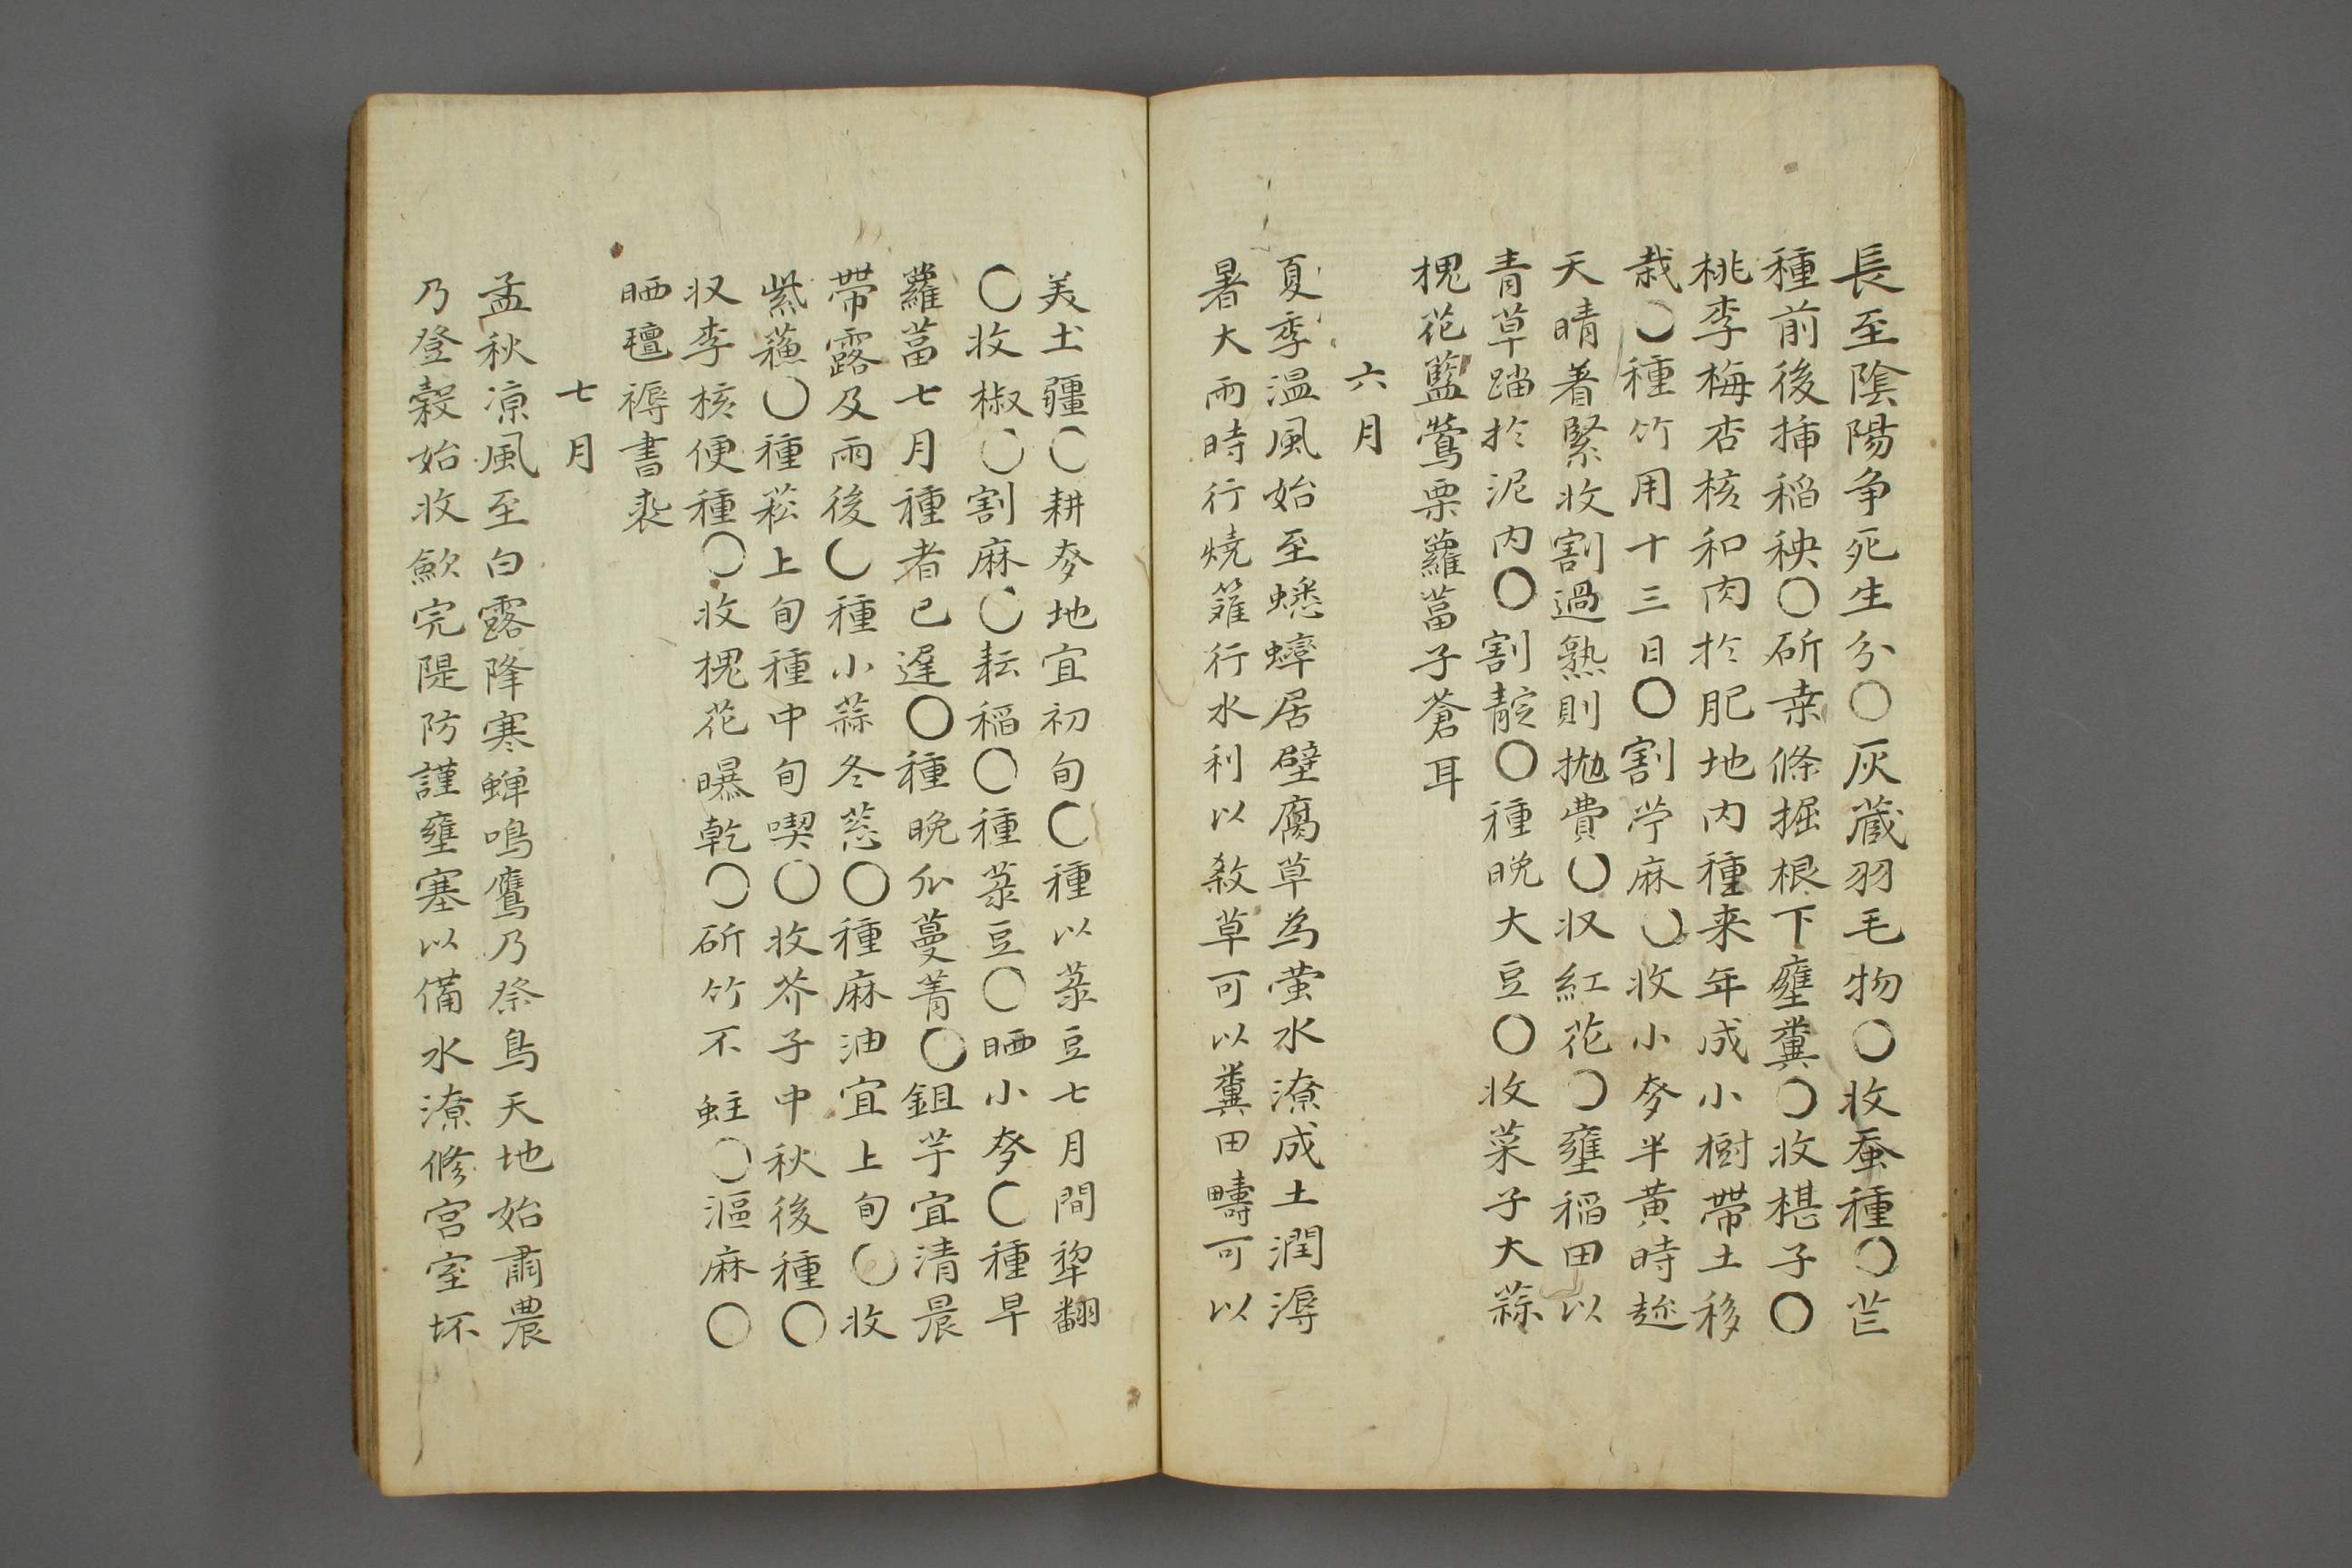 長至陰陽争死生分〇灰蔵羽毛物〇收蚕種〇芒
種前後挿稻秧〇斫桒條掘根下壅糞〇收椹子〇
桃李梅杏核和肉於肥地内種来年成小樹帶土移
栽〇種竹用十三日〇割苧麻〇收小麥半黄時趂
天晴着緊收割過熟則拋費〇収紅花〇壅稻田以
青草踏於泥内〇割靛〇種晩大豆〇收菜子大蒜
槐花藍鶯栗蘿葍子蒼耳
六月
夏季温風始至蟋蟀居壁腐草為萤水潦成土潤溽
暑大雨時行燒薙行水利以殺草可以糞田疇可以
美土疆〇耕麥地宜初旬〇種以菉豆七月間犂翻
〇收椒〇割麻〇耘稻〇種菉豆〇晒小麥〇種早
蘿葍七月種者已遅〇種晩瓜蔓菁〇鉏芋宜清晨
帶露及雨後〇種小蒜冬葱〇種麻油宜上旬〇收
紫蘓〇種菘上旬種中旬喫〇收芥子中秋後種〇
収李核便種〇收槐花曝乾〇斫竹不蛀〇漚麻〇
晒氊褥書裘
七月
孟秋凉風至白露降寒蟬鳴鷹乃祭鳥天地始肅農
乃登榖始收歛完隄防謹壅塞以備水潦修宮室坏